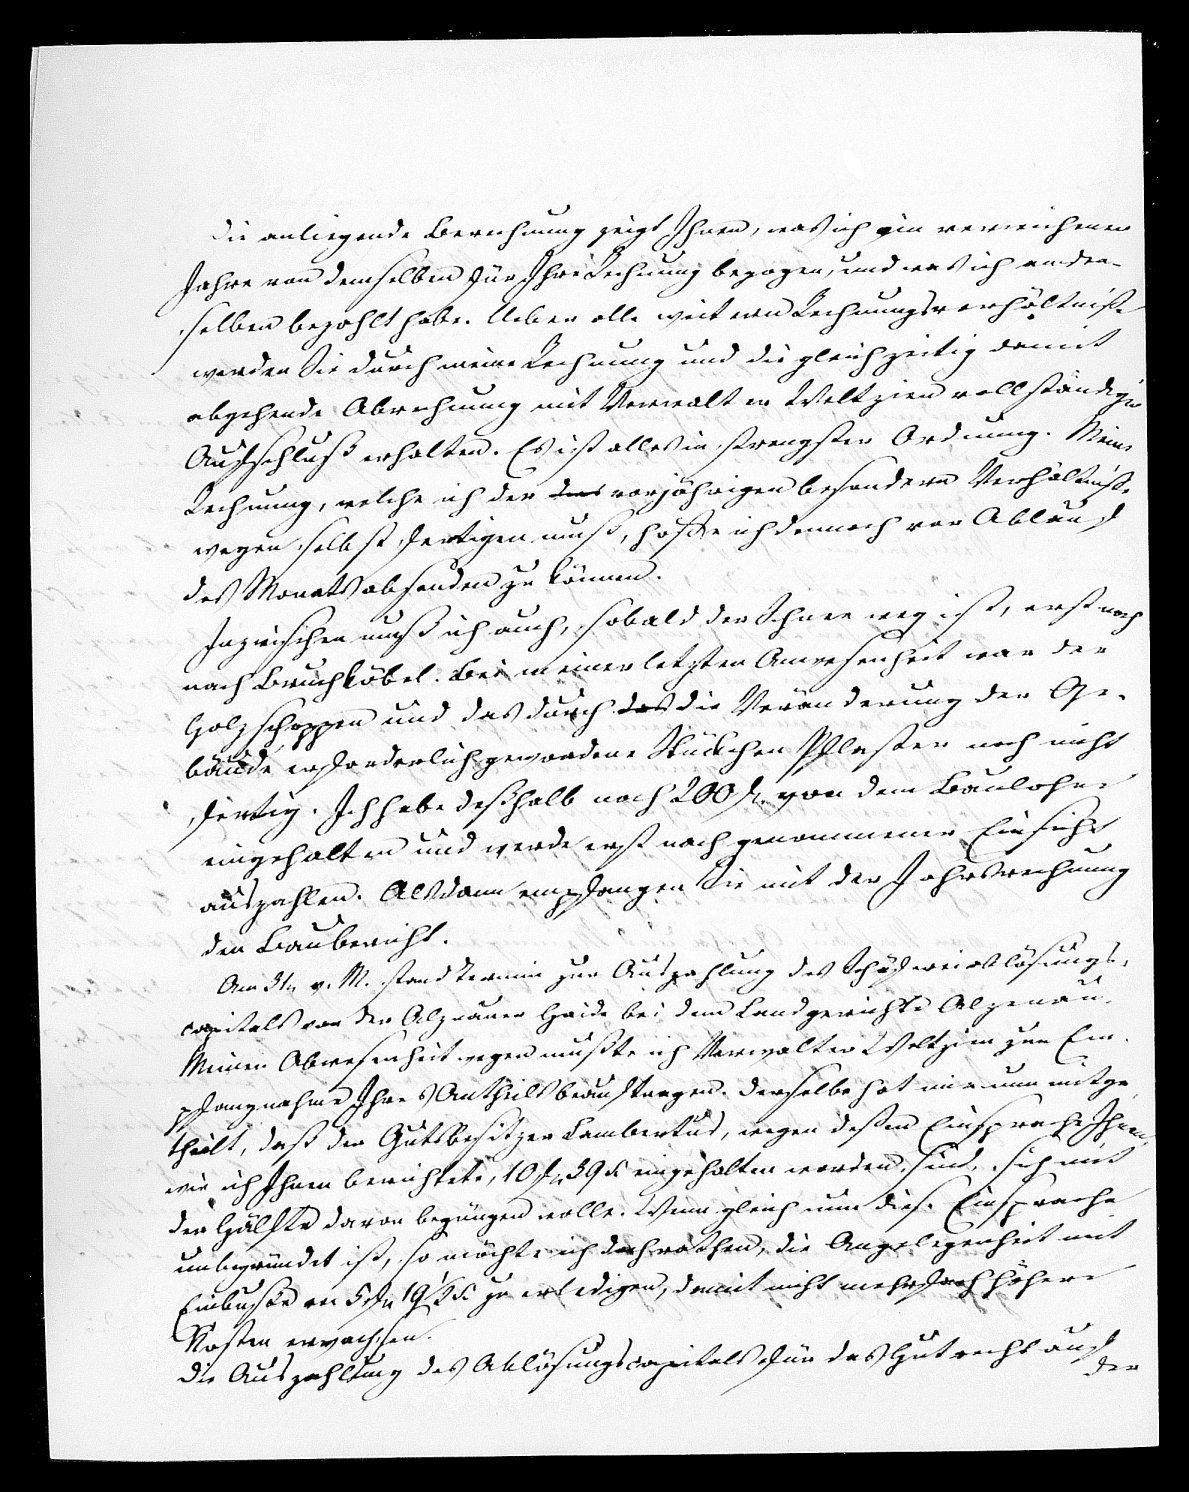 Die anliegende Berechnung zeigt Ihnen, was ich im verwichenen
Jahre von demselben für Ihre Rechnung bezogen, und was ich an den-
selben bezahlt habe. Ueber alle weitern Rechnungsverhältniße
werden Sie durch meine Rechnung und die gleichzeitig damit
abgehende Abrechnung mit Verwalter Weltzien vollständigen
Aufschluß erhalten. Es ist alles in strengster Ordnung. Meine
Rechnung, welche ich der vorjährigen besondern Verhältniße
wegen selbst fertigen muß, hoffe ich dennoch vor Ablauf
des Monats absenden zu können.
Inzwischen muß ich auch, sobald der Schnee weg ist, erst noch
nach Bruchköbel. Bei meiner letzten Anwesenheit war der
Holzschoppen und das durch das die Veränderung der Ge-
bäude erforderlich gewordene Stückchen Pflaster noch nicht
fertig. Ich habe deßhalb noch 200 f. von dem Baulohne
eingehalten und werde erst nach genommener Einsicht
auszahlen. Alsdann empfangen Sie mit der Jahrsrechnung
den Baubericht.
Am 3tn v. M. stand Termin zur Auszahlung des Schafweidlösungs-
capitals von der Alzenauer Haide bei dem Landgerichte Alzenau.
Meiner Abwesenheit wegen mußte ich Verwalter Weltzien zur Em-
pfangnahme Ihres Antheils beauftragen. Derselbe hat mir nun mitge-
theilt, daß der Gutsbesitzer Lambertus, wegen deßen Einsprache Ihnen,
wie ich Ihnen berichtete, 10 f. 39 x eingehalten worden sind, sich mit
der Hälfte davon begnügen wolle. Wenn gleich nun diese Einsprache
unbegründet ist, so möchte ich doch rathen, die Angelegenheit mit
Einbuße von 5 f. 19 1/2 x zu erledigen, damit nicht mehr noch höhere
Kosten erwachsen.
Die Auszahlung des Ablösungscapitals für das Hutrecht auf
der